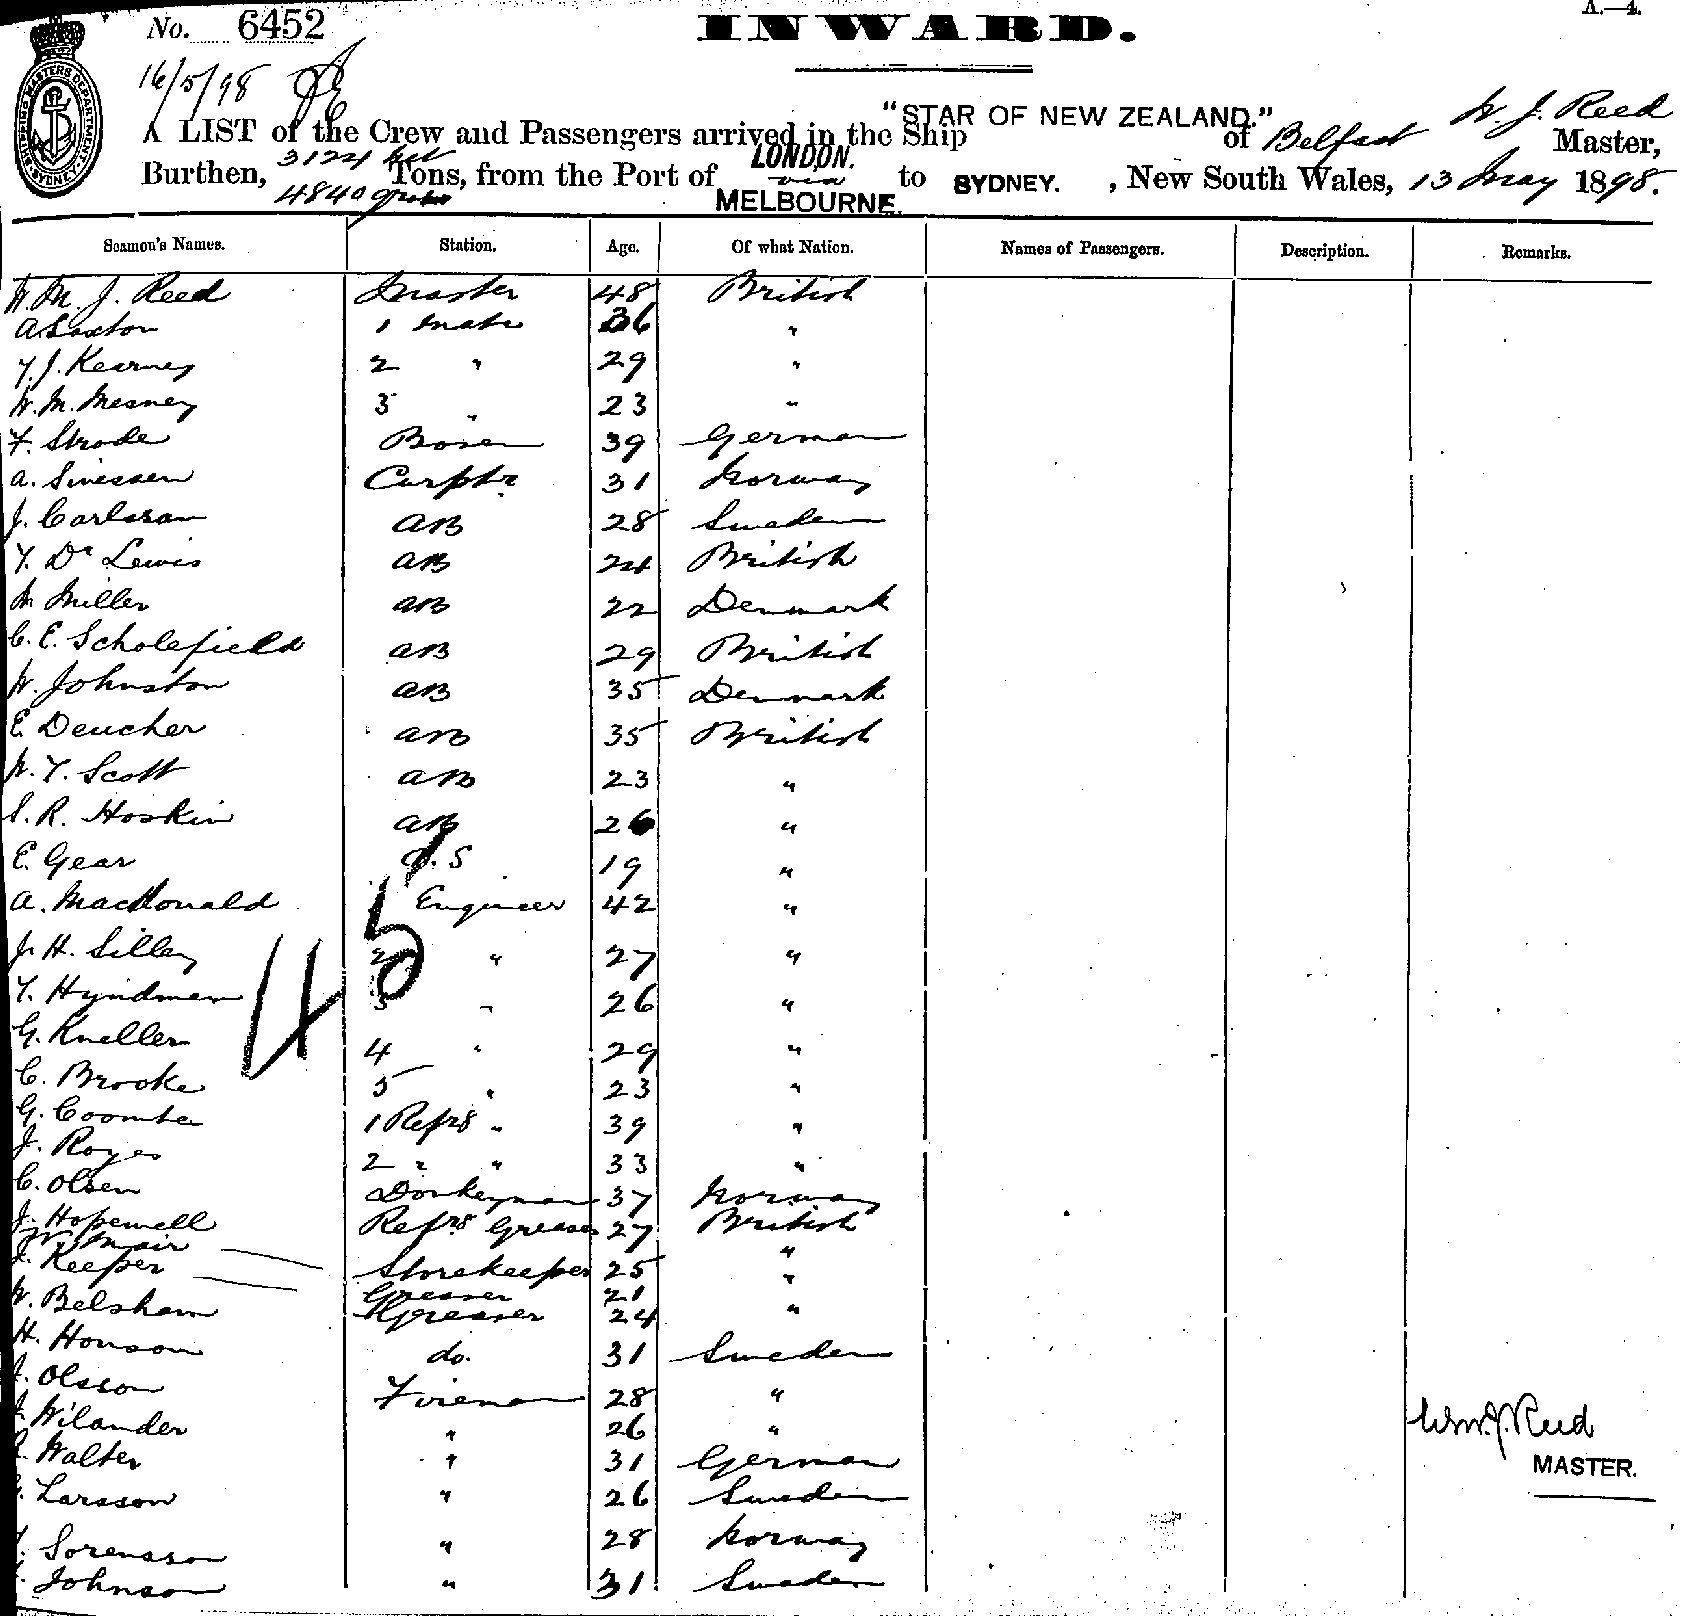 A.—4.
No. 6452 INWARD.
SHIPPING MASTERS DEPARTMENT SYDNEY
16/5/98
A LIST of the Crew and Passengers arrived in the Ship "STAR OF NEW ZEALAND." of Belfast W. J. Reed Master,
Burthen, 3124 net 4840 gross Tons, from the Port of LONDON. via MELBOURNE. to SYDNEY. , New South Wales, 13 May 1898.
Seamen's Names. Station. Age. Of what Nation. Names of Passengers. Description. Remarks.
W. M. J. Reed Master 48 British
A Saxton 1 Mate 36 "
T. J. Kearney 2 " 29 "
W. M. Mesney 3 " 23 "
F. Strode Bosen 39 German
A. Sivessen Carptr 31 Norway
J. Carlsson AB 28 Sweden
T. Dr Lewis AB 24 British
M Miller AB 22 Denmark
C. E. Scholefield AB 29 British
W. Johnston AB 35 Denmark
E Deucher AB 35 British
W. T. Scott AB 23 "
S. R. Hoskin AB 26 "
E. Gear O.S 19 "
A. MacDonald 1 Engineer 42 "
J. H. Silley 2 " 27 "
T. Hyndman 3 " 26 "
G. Kneller 4 " 29 "
C. Brooke 5 " 23 "
G. Coombe 1 Refrs " 39 "
J. Royes 2 " " 33 "
C. Olsen Donkeyman 37 Norway
J. Hopewell Refrs Greaser 27 British
W. Mair Storekeeper 25 "
J. Keeper Greaser 21 "
W. Belsham Greaser 24 "
H. Honson do. 31 Sweden
J. Olsson Fireman 28 "
J. Wilander " 26 "
Walter " 31 German
Larsson " 26 Sweden
Sorensson " 28 Norway
Johnson " 31 Sweden
45
Wm. J. Reed
MASTER.